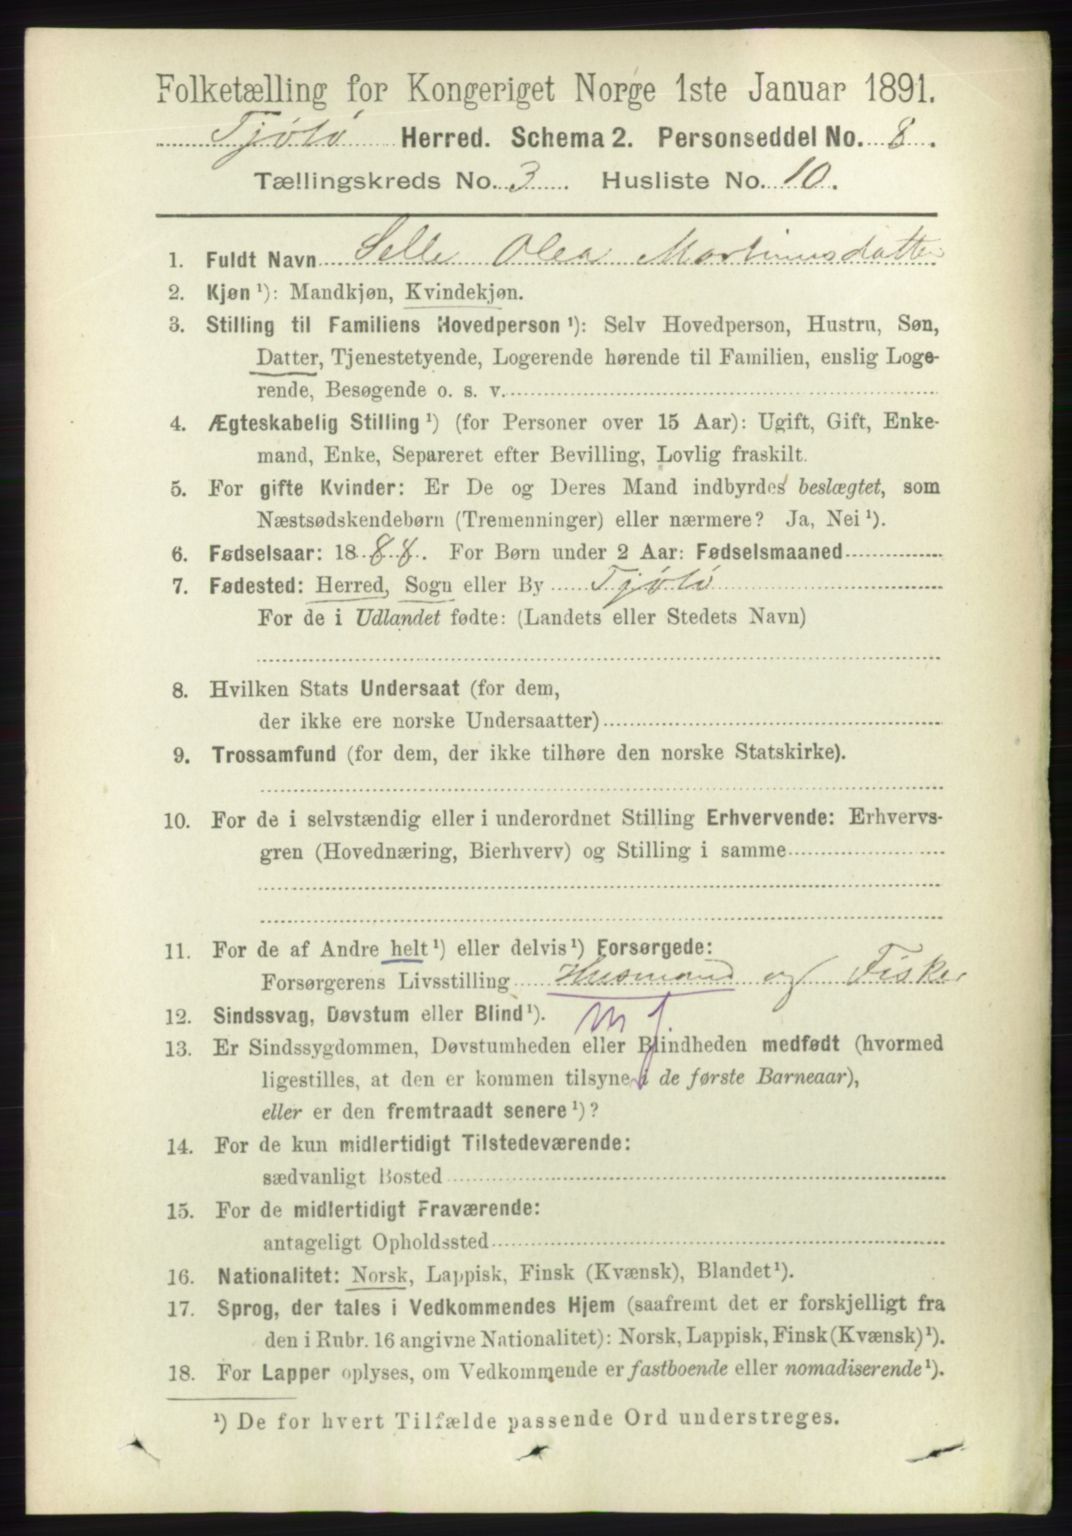 Folketælling for Kongeriget Norge 1ste Januar 1891.
Tjøtø Herred. Schema 2. Personseddel No. 8.
Tællingskreds No. 3. Husliste No. 10.
1. Fuldt Navn Selle Olea Martinusdatter
2. Kjøn ¹): Mandkjøn, Kvindekjøn.
3. Stilling til Familiens Hovedperson ¹): Selv Hovedperson, Hustru, Søn,
Datter, Tjenestetyende, Logerende hørende til Familien, enslig Loge-
rende, Besøgende o. s. v.
4. Ægteskabelig Stilling ¹) (for Personer over 15 Aar): Ugift, Gift, Enke-
mand, Enke, Separeret efter Bevilling, Lovlig fraskilt.
5. For gifte Kvinder: Er De og Deres Mand indbyrdes beslægtet, som
Næstsødskendebørn (Tremenninger) eller nærmere? Ja, Nei ¹).
6. Fødselsaar: 1888. For Børn under 2 Aar: Fødselsmaaned
7. Fødested: Herred, Sogn eller By Tjøtø
For de i Udlandet fødte: (Landets eller Stedets Navn)
8. Hvilken Stats Undersaat (for dem,
der ikke ere norske Undersaatter)
9. Trossamfund (for dem, der ikke tilhøre den norske Statskirke).
10. For de i selvstændig eller i underordnet Stilling Erhvervende: Erhvervs-
gren (Hovednæring, Bierhverv) og Stilling i samme
11. For de af Andre helt ¹) eller delvis ¹) Forsørgede:
Forsørgerens Livsstilling Husmand og Fisker
12. Sindssvag, Døvstum eller Blind ¹). m f
13. Er Sindssygdommen, Døvstumheden eller Blindheden medfødt (hvormed
ligestilles, at den er kommen tilsyne i de første Barneaar),
eller er den fremtraadt senere ¹)?
14. For de kun midlertidigt Tilstedeværende:
sædvanligt Bosted
15. For de midlertidigt Fraværende:
antageligt Opholdssted
16. Nationalitet: Norsk, Lappisk, Finsk (Kvænsk), Blandet ¹).
17. Sprog, der tales i Vedkommendes Hjem (saafremt det er forskjelligt fra
den i Rubr. 16 angivne Nationalitet): Norsk, Lappisk, Finsk (Kvænsk) ¹).
18. For Lapper oplyses, om Vedkommende er fastboende eller nomadiserende ¹).
¹) De for hvert Tilfælde passende Ord understreges.